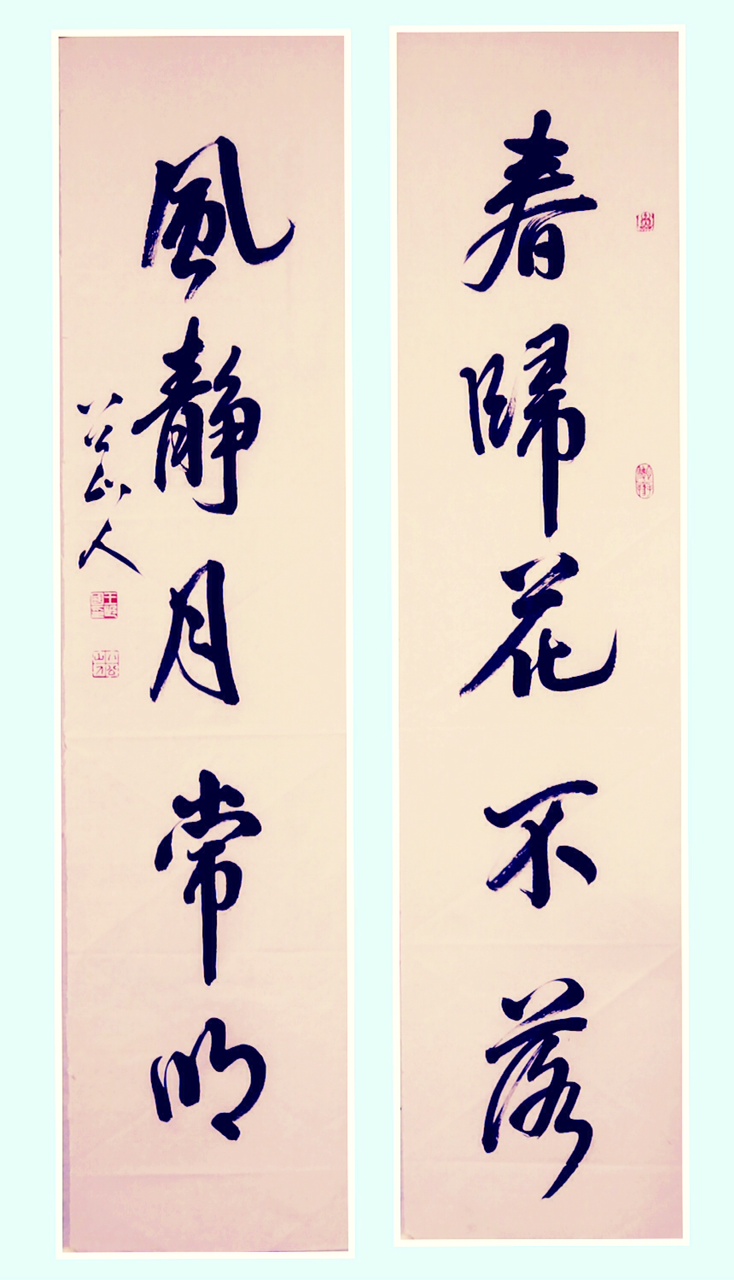 春歸花不落
風靜月常明
八公山人